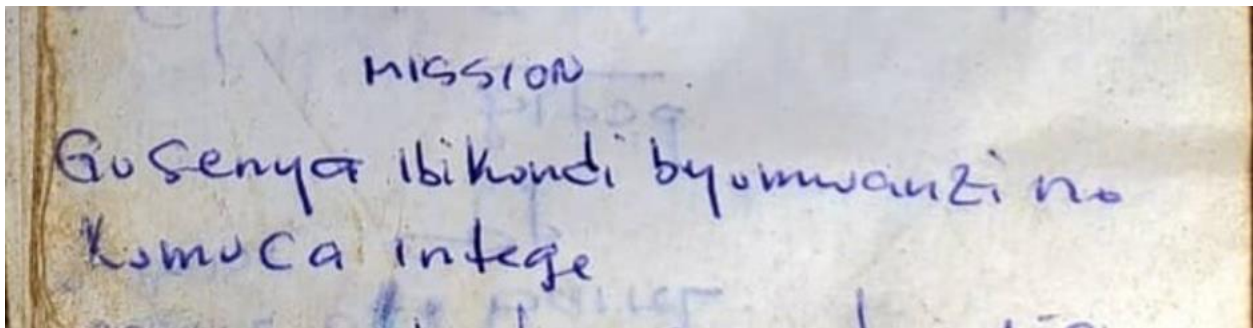 MISSION
Gusenya ibikondi byumwanzi no
Kumuca intege